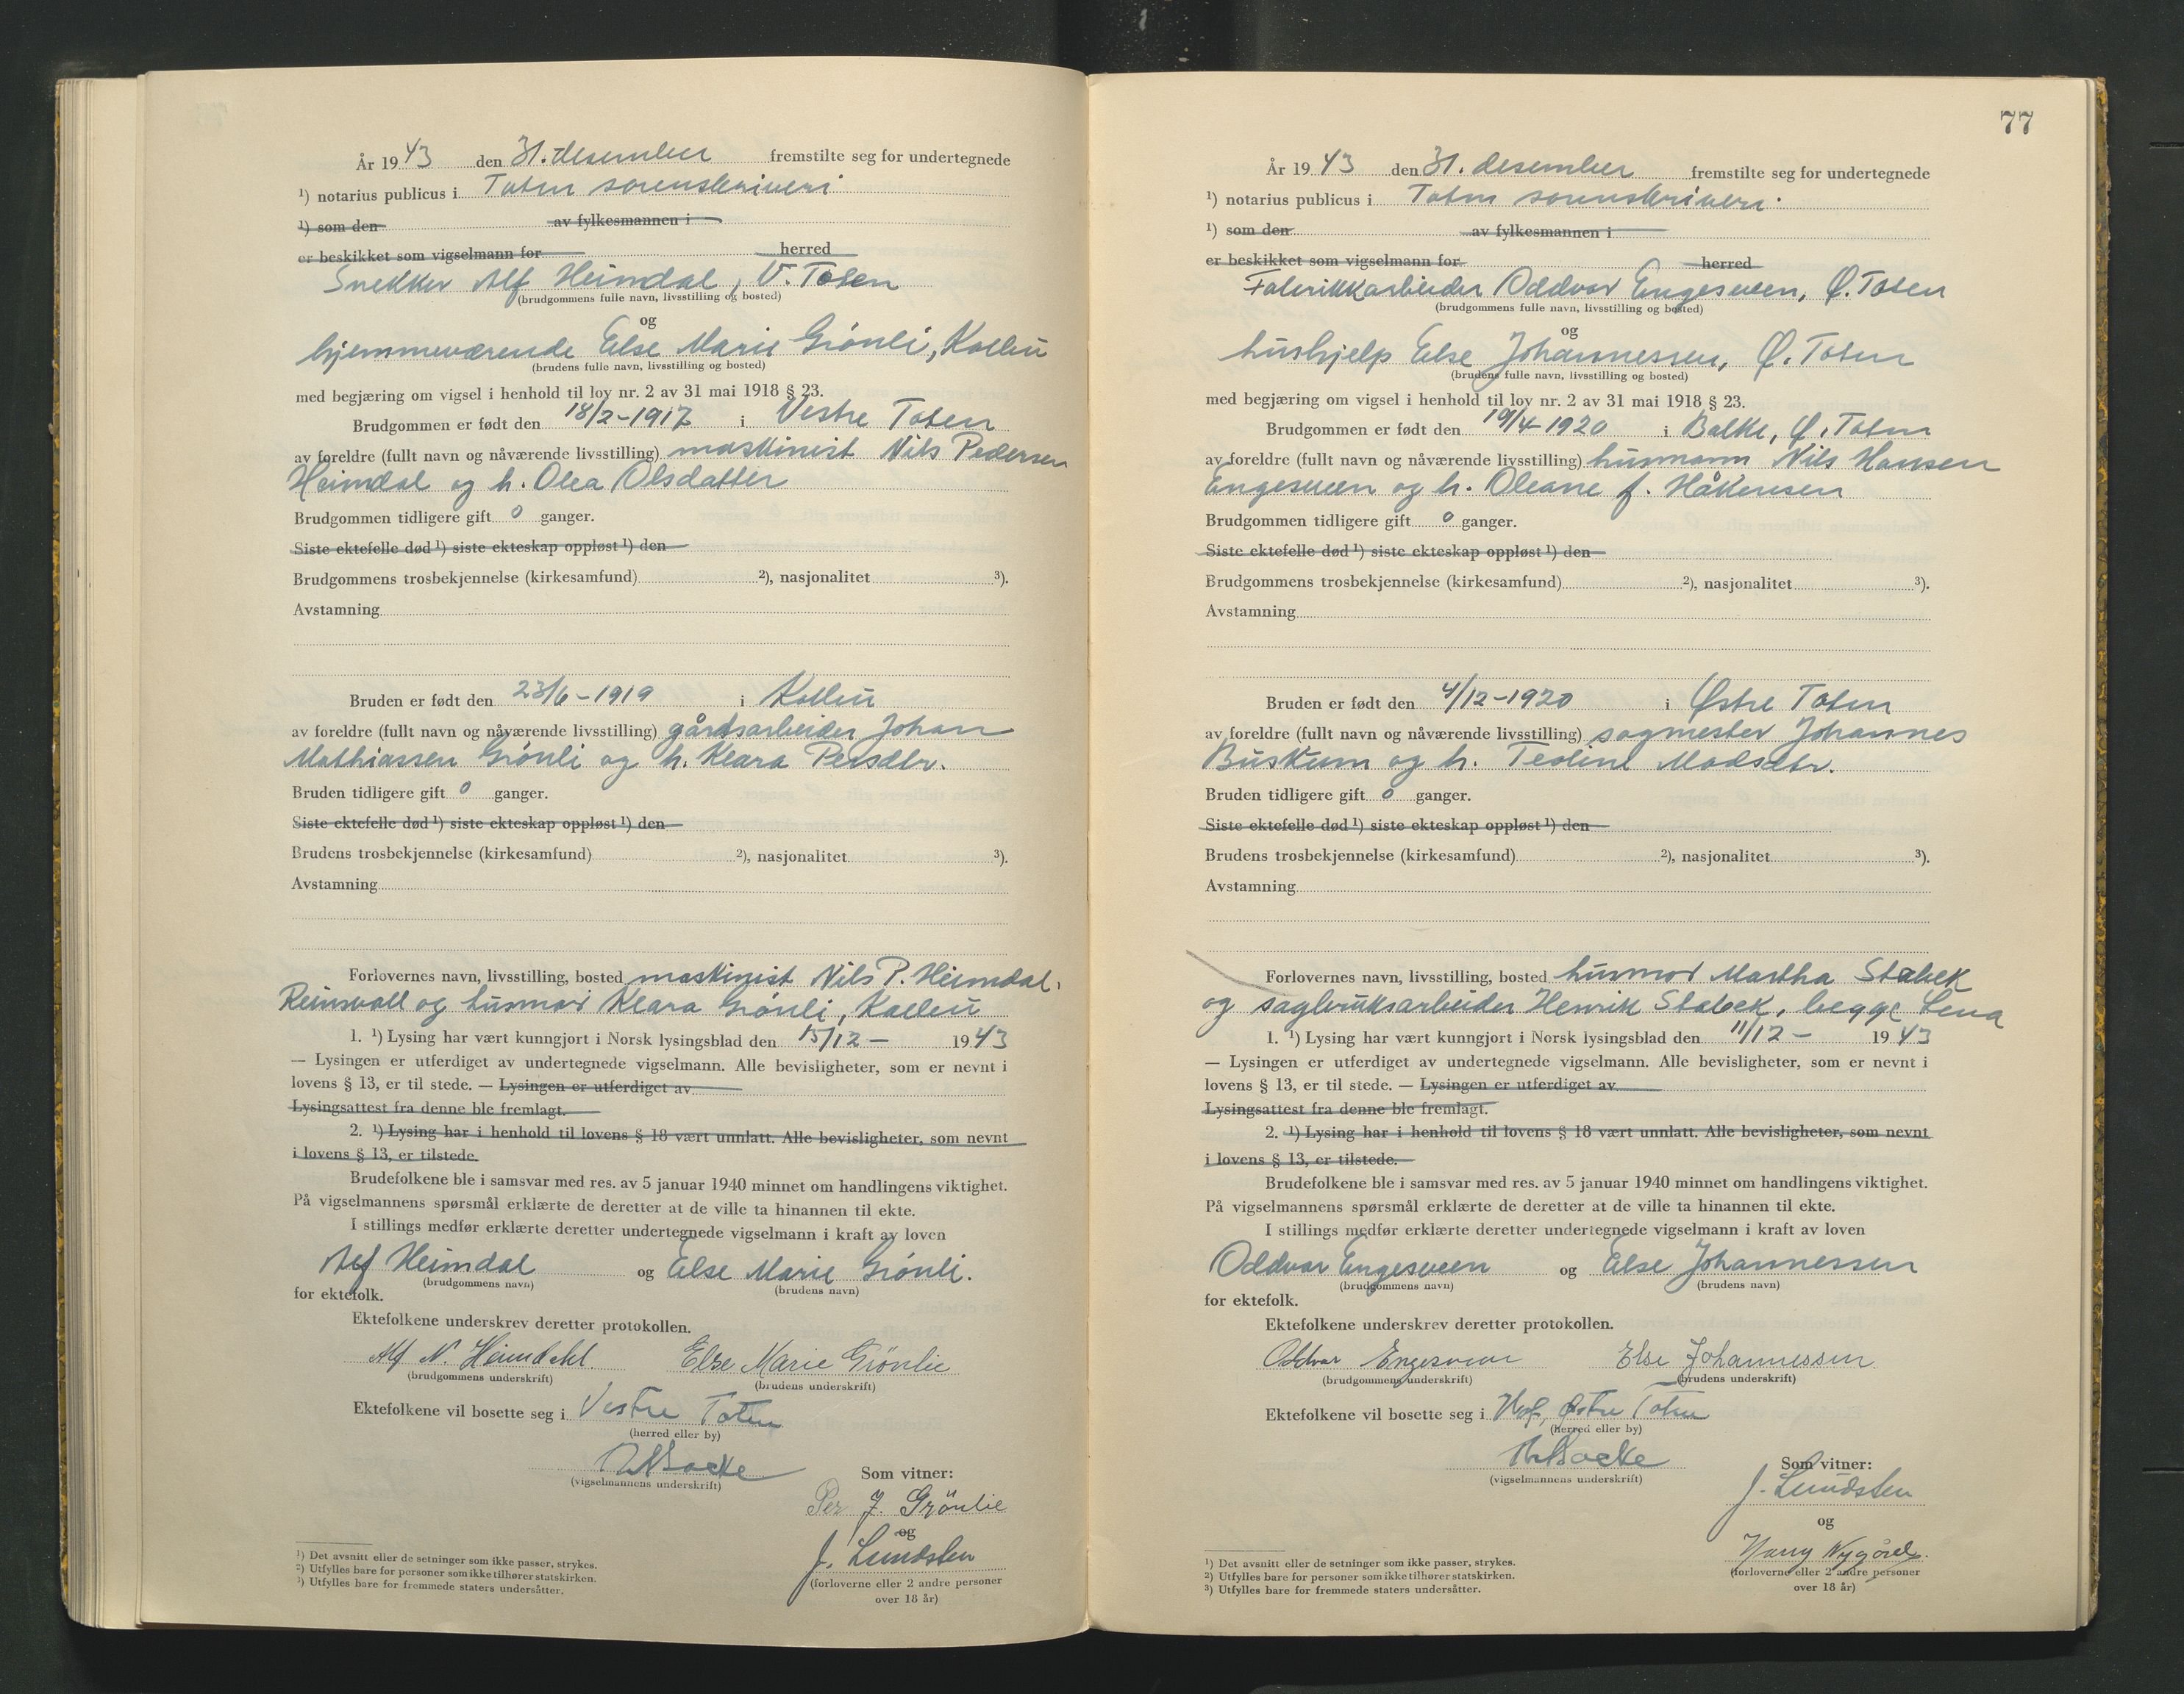 År 1943 den 31. desember fremstilte seg for undertegnede
¹) notarius publicus i Toten sorenskriveri
¹) som den av fylkesmannen i
er beskikket som vigselmann for herred
Snekker Alf Heimdal, V. Toten
(brudgommens fulle navn, livsstilling og bosted)
og
hjemmeværende Else Marie Grönli, Kolbu
(brudens fulle navn, livsstilling og bosted)
med begjæring om vigsel i henhold til lov nr. 2 av 31 mai 1918 § 23.
Brudgommen er født den 18/2-1917 i Vestre Toten
av foreldre (fullt navn og nåværende livsstilling) maskinist Nils Pedersen
Heimdal og h. Olea Olsdatter
Brudgommen tidligere gift 0 ganger.
Siste ektefelle død ¹) siste ekteskap oppløst ¹) den
Brudgommens trosbekjennelse (kirkesamfund) ²), nasjonalitet ³).
Avstamning
Bruden er født den 23/6-1919 i Kolbu
av foreldre (fullt navn og nåværende livsstilling) gårdsarbeider Johan
Mathiassen Grönli og h. Klara Persdtr.
Bruden tidligere gift 0 ganger.
Siste ektefelle død ¹) siste ekteskap oppløst ¹) den
Brudens trosbekjennelse (kirkesamfund) ²), nasjonalitet ³).
Avstamning
Forlovernes navn, livsstilling, bosted maskinist Nils P. Heimdal,
Reinsvoll og husmor Klara Grönli, Kolbu
1. ¹) Lysing har vært kunngjort i Norsk lysingsblad den 15/12- 1943
— Lysingen er utferdiget av undertegnede vigselmann. Alle bevisligheter, som er nevnt i
lovens § 13, er til stede. — Lysingen er utferdiget av
Lysingsattest fra denne ble fremlagt.
2. ¹) Lysing har i henhold til lovens § 18 vært unnlatt. Alle bevisligheter, som nevnt
i lovens § 13, er tilstede.
Brudefolkene ble i samsvar med res. av 5 januar 1940 minnet om handlingens viktighet.
På vigselmannens spørsmål erklærte de deretter at de ville ta hinannen til ekte.
I stillings medfør erklærte deretter undertegnede vigselmann i kraft av loven
Alf Heimdal og Else Marie Grönli.
(brudgommens navn) (brudens navn)
for ektefolk.
Ektefolkene underskrev deretter protokollen.
Alf N. Heimdahl. Else Marie Grönlie
(brudgommens underskrift) (brudens underskrift)
Ektefolkene vil bosette seg i Vestre Toten
(herred eller by)
(vigselmannens underskrift)
Som vitner:
Per J. Grönlie
og
J. Lundsten
(forloverne eller 2 andre personer
over 18 år)
¹) Det avsnitt eller de setninger som ikke passer, strykes.
²) Utfylles bare for personer som ikke tilhører statskirken.
³) Utfylles bare for fremmede staters undersåtter.
77
År 1943 den 31. desember fremstilte seg for undertegnede
¹) notarius publicus i Toten sorenskriveri
¹) som den av fylkesmannen i
er beskikket som vigselmann for herred
Fabrikkarbeider Oddvar Engesveen, Ø. Toten
(brudgommens fulle navn, livsstilling og bosted)
og
hushjelp Else Johannessen, Ø. Toten
(brudens fulle navn, livsstilling og bosted)
med begjæring om vigsel i henhold til lov nr. 2 av 31 mai 1918 § 23.
Brudgommen er født den 19/4-1920 i Balke, Ø. Toten
av foreldre (fullt navn og nåværende livsstilling) husmann Nils Hansen
Engesveen og h. Oleane f. Håkensen
Brudgommen tidligere gift 0 ganger.
Siste ektefelle død ¹) siste ekteskap oppløst ¹) den
Brudgommens trosbekjennelse (kirkesamfund) ²), nasjonalitet ³).
Avstamning
Bruden er født den 4/12-1920 i Østre Toten
av foreldre (fullt navn og nåværende livsstilling) sagmester Johannes
Buskum og h. Teoline Madsdtr.
Bruden tidligere gift 0 ganger.
Siste ektefelle død ¹) siste ekteskap oppløst ¹) den
Brudens trosbekjennelse (kirkesamfund) ²), nasjonalitet ³).
Avstamning
Forlovernes navn, livsstilling, bosted husmor Martha Stabek
og sagbruksarbeider Henrik Stabek, begge Lena
1. ¹) Lysing har vært kunngjort i Norsk lysingsblad den 11/12- 1943
— Lysingen er utferdiget av undertegnede vigselmann. Alle bevisligheter, som er nevnt i
lovens § 13, er til stede. — Lysingen er utferdiget av
Lysingsattest fra denne ble fremlagt.
2. ¹) Lysing har i henhold til lovens § 18 vært unnlatt. Alle bevisligheter, som nevnt
i lovens § 13, er tilstede.
Brudefolkene ble i samsvar med res. av 5 januar 1940 minnet om handlingens viktighet.
På vigselmannens spørsmål erklærte de deretter at de ville ta hinannen til ekte.
I stillings medfør erklærte deretter undertegnede vigselmann i kraft av loven
Oddvar Engesveen og Else Johannessen
(brudgommens navn) (brudens navn)
for ektefolk.
Ektefolkene underskrev deretter protokollen.
Oddvar Engesveen Else Johannessen
(brudgommens underskrift) (brudens underskrift)
Ektefolkene vil bosette seg i Hof, Østre Toten
(herred eller by)
(vigselmannens underskrift)
Som vitner:
J. Lundsten
og
Harry Nygård.
(forloverne eller 2 andre personer
over 18 år)
¹) Det avsnitt eller de setninger som ikke passer, strykes.
²) Utfylles bare for personer som ikke tilhører statskirken.
³) Utfylles bare for fremmede staters undersåtter.